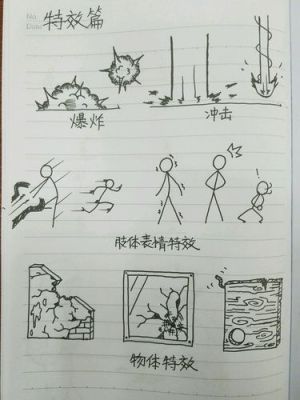 No.
Date
特效篇
爆炸
冲击
肢体表情特效
物体特效